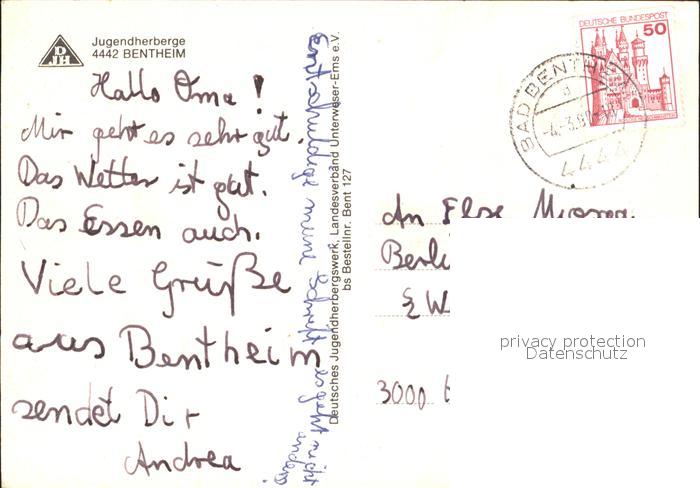 DJH
Jugendherberge
4442 BENTHEIM
Hallo Oma!
Mir geht es sehr gut.
Das Wetter ist gut.
Das Essen auch.
Viele Grüße
aus Bentheim
sendet Dir
Andrea
Entschuldige meine Schrift es geht nicht
anders
Deutsches Jugendherbergswerk, Landesverband Unterweser-Ems e.V.
bs Bestellnr. Bent 127
DEUTSCHE BUNDESPOST
50
BAD BENTHEIM
a
4444
An Else
3000
privacy protection
Datenschutz